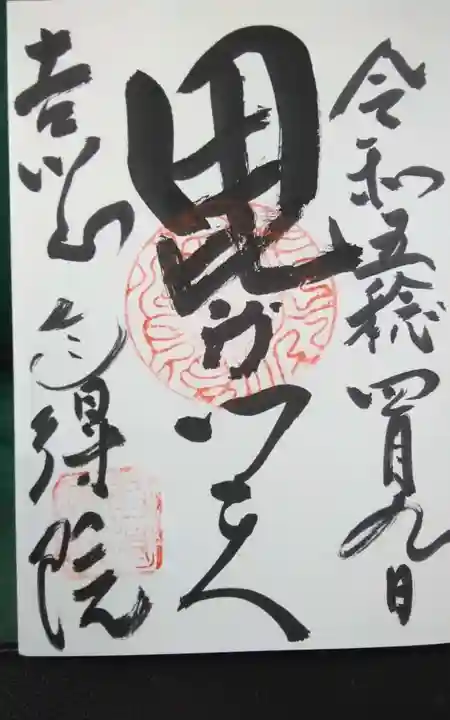 令和五稔四月九日
毘沙門天
吉川山 得院